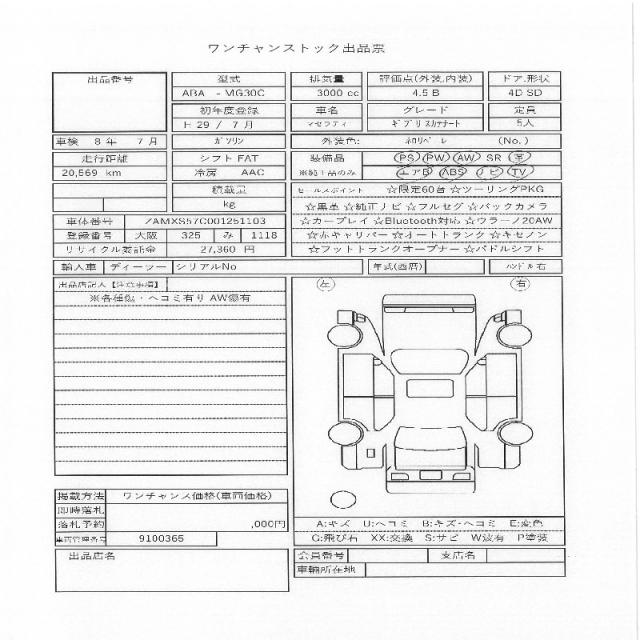 ワンチャンストック出品票
出品番号 型式 排気量 評価点(外装,内装) ドア,形状
ABA - MG30C 3000 cc 4.5 B 4D SD
初年度登録 車名 グレード 定員
H 29 / 7 月 マセラティ ギブリ スカテナート 5人
車検 8 年 7 月 ガソリン 外装色: ネロリベレ (No. )
走行距離 シフト FAT 装備品 PS PW AW SR 革
20,569 km 冷房 AAC ※純正品のみ エアB ABS ナビ TV
積載量 セールスポイント ☆限定60台 ☆ツーリングPKG
kg ☆黒革 ☆純正ナビ ☆フルセグ ☆バックカメラ
車体番号 ZAMXS57C001251103 ☆カープレイ ☆Bluetooth対応 ☆ウラーノ20AW
登録番号 大阪 325 み 1118 ☆赤キャリパー ☆オートトランク ☆キセノン
リサイクル委託金 27,360 円 ☆フットトランクオープナー ☆パドルシフト
輸入車 ディーラー シリアルNo 年式(西暦) ハンドル 右
出品店記入【注意事項】 左 右
※各種傷・ヘコミ有り AW傷有
掲載方法 ワンチャンス価格(車両価格)
即時落札
落札予約 ,000円 A:キズ U:ヘコミ B:キズ・ヘコミ E:変色
車両管理番号 9100365 G:飛び石 XX:交換 S:サビ W波有 P塗装
出品店名 会員番号 支店名
車輌所在地